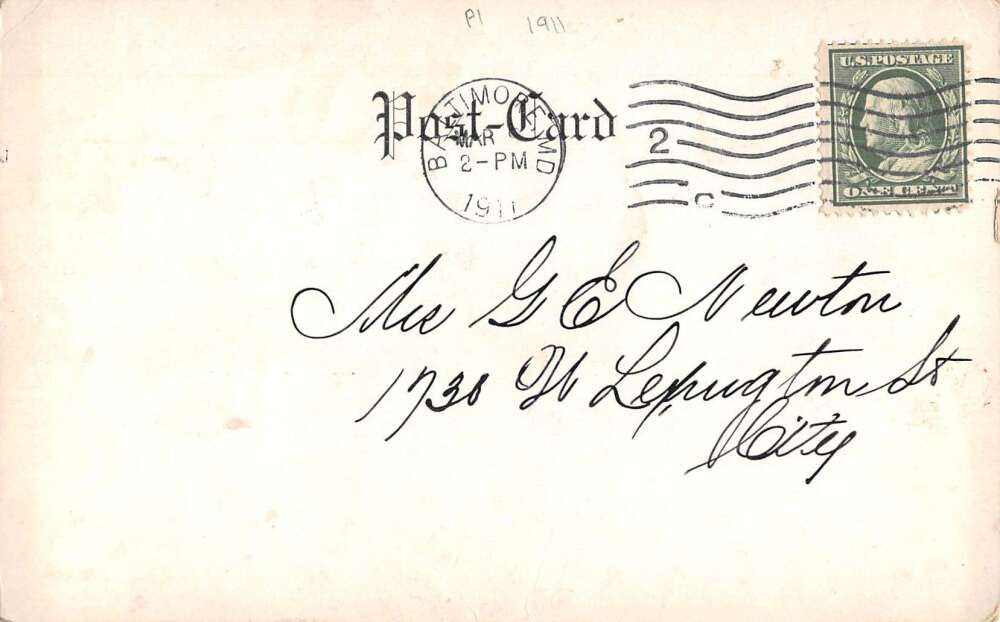 P1 1911
Post-Card
BALTIMORE, MD
MAR
2-PM
1911
2
C
U.S. POSTAGE
ONE CENT
G E Newton
1730 W Lexington St
City